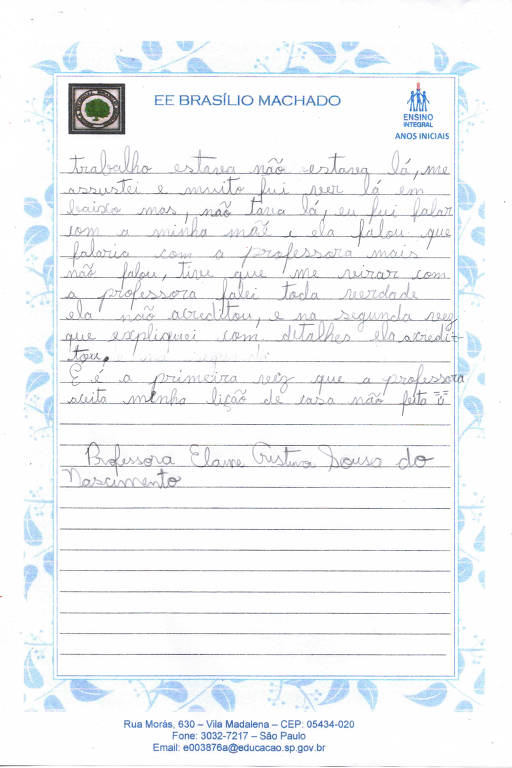 EE BRASÍLIO MACHADO
ENSINO
INTEGRAL
ANOS INICIAIS
trabalho estava não estava lá, me
assustei e muito fui ver lá em
baixo mas, não tava lá, eu fui falar
com a minha mãe e ela falou que
falaria com a professora mais
não falou, tive que me virar com
a professora falei toda verdade
ela não acreditou, e na segunda vez
que expliquei com detalhes ela acredi-
tou.
E é a primeira vez que a professora
aceita minha lição de casa não feita
Professora Elaine Cristina Sousa do
Nascimento
Rua Morás, 630 – Vila Madalena – CEP: 05434-020
Fone: 3032-7217 – São Paulo
Email: e003876a@educacao.sp.gov.br